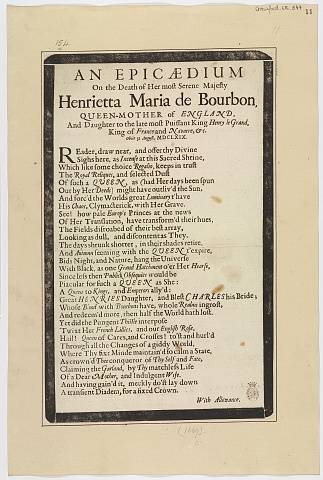 154
11
AN EPICÆDIUM
On the Death of Her most Serene Majesty
Henrietta Maria de Bourbon,
QUEEN-MOTHER of ENGLAND,
And Daughter to the late most Puissant King Henry le Grand,
King of France and Navarre, &c.
obiit 31 August, MDCLXIX.
REader, draw near, and offer thy Divine
Sighs here, as Incense at this Sacred Shrine,
Which like some choice Regalio, keeps in trust
The Royal Reliques, and selected Dust
Of such a QUEEN, as (had Her days been spun
Out by Her Deeds) might have outliv'd the Sun,
And forc'd the Worlds great Luminary t'have
His Chaos, Clymacterick, with Her Grave.
See! how pale Europ's Princes at the news
Of Her Translation, have transform'd their hues,
The Fields disroabed of their best array,
Looking as dull, and discontent as They.
The days shrunk shorter, in their shades retire,
And Autumn seeming with the QUEEN t'expire,
Bids Night, and Nature, hang the Universe
With Black, as one Grand Hatchment o'er Her Hearse,
Since less then Publick Obsequies would be
Piacular for such a QUEEN as She:
A Queen to Kings, and Emperors ally'd:
Great HENRIES Daughter, and Blest CHARLES his Bride;
Whose Bloud with Bourbons have, whole Realms ingrost,
And redeem'd more, then half the World hath lost.
Yet did the Pungent Thistle interpose
Twixt Her French Lillies, and our English Rose,
Hail! Queen of Cares, and Crosses! tost and hurl'd
Through all the Changes of a giddy World,
Where Thy fixt Minde maintain'd so calm a State,
As crown'd Thee conqueror of Thy Self and Fate,
Claiming the Garland, by Thy matchless Life
Of a Dear Mother, and Indulgent Wife.
And having gain'd it, meekly do'st lay down
A transient Diadem, for a fixed Crown.
With Allowance.
(1669)